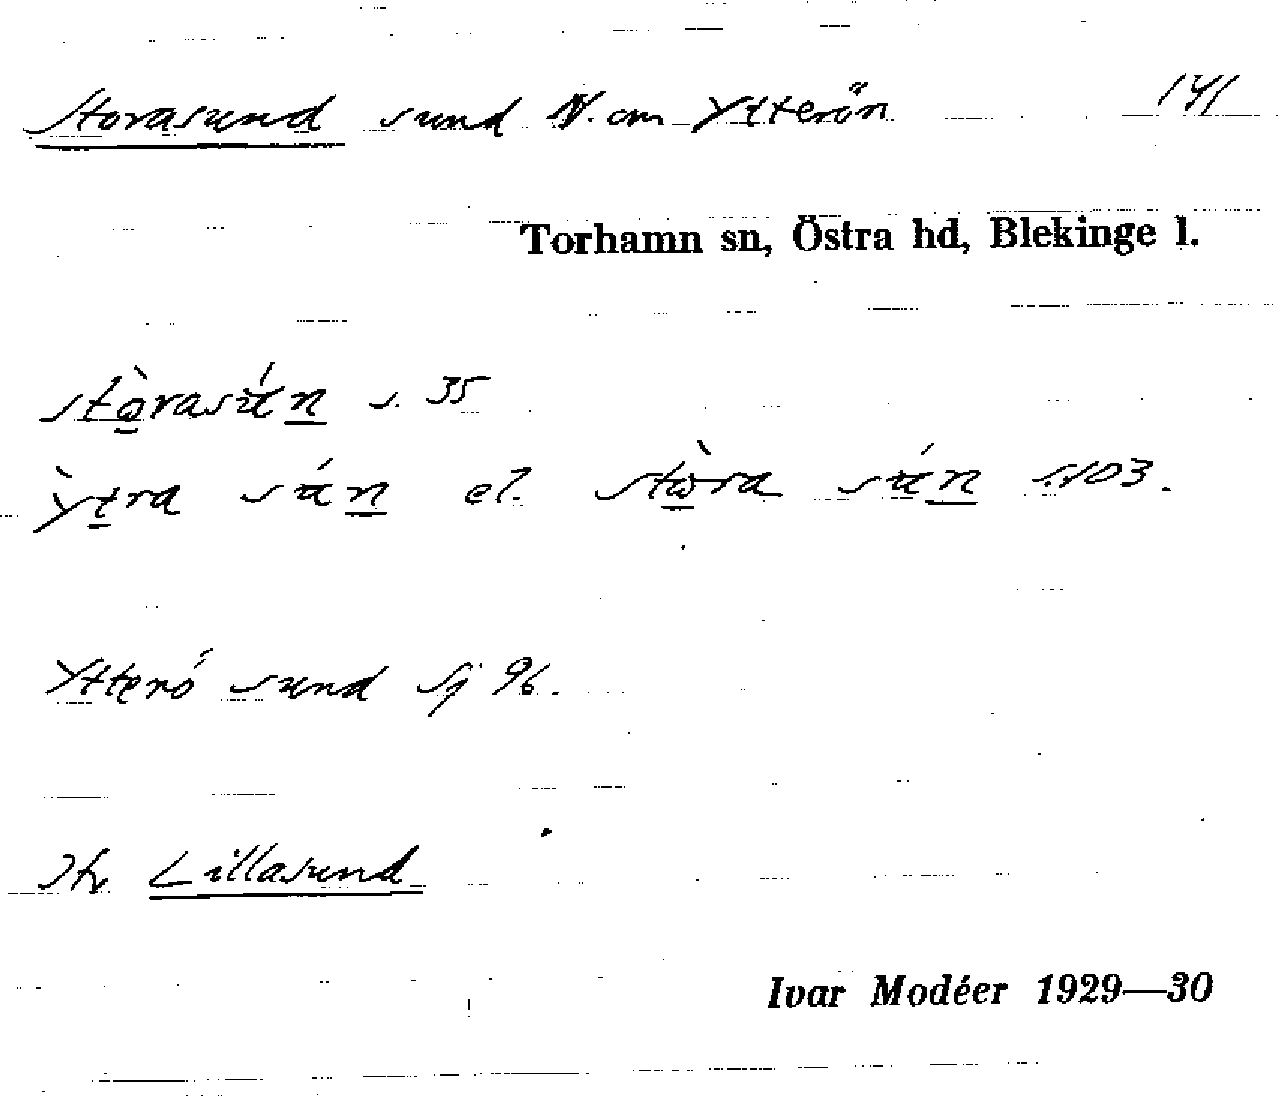 Storasund sund N. om Ytterön 141
Torhamn sn, Östra hd, Blekinge l.
stòrasún s. 35
Ỳtra sún el. stòra sún s. 103.
Ytterö sund Sj 96.
Jfr Lillasund
Ivar Modéer 1929—30